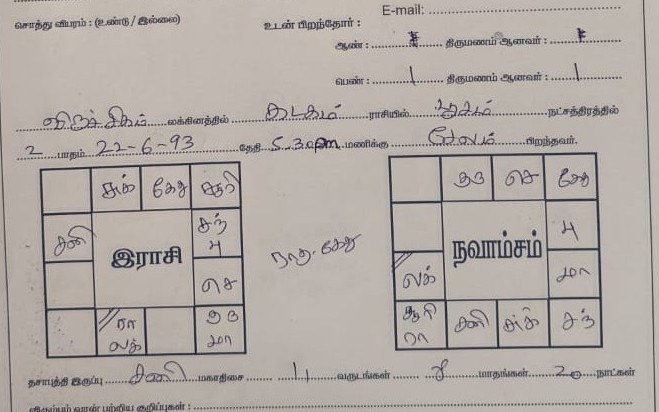 E-mail:
சொத்து விபரம் : (உண்டு / இல்லை) உடன் பிறந்தோர் :
ஆண் : திருமணம் ஆனவர் :
பெண் : 1 திருமணம் ஆனவர் : 1
விருச்சிகம் லக்கினத்தில் கடகம் ராசியில் பூசம் நட்சத்திரத்தில்
2 பாதம் 22-6-93 தேதி 5.30pm மணிக்கு சேலம் பிறந்தவர்.
சுக் கேது சூரி
சனி
சந்
பு
இராசி
செ
ரா
லக்
குரு
மா
ராகு.கேது
குரு செ கேது
பு
நவாம்சம்
லக் மா
சூரி
ரா
சனி சுக் சந்
தசாபுத்தி இருப்பு சனி மகாதிசை 11 வருடங்கள் 8 மாதங்கள் 20 நாட்கள்